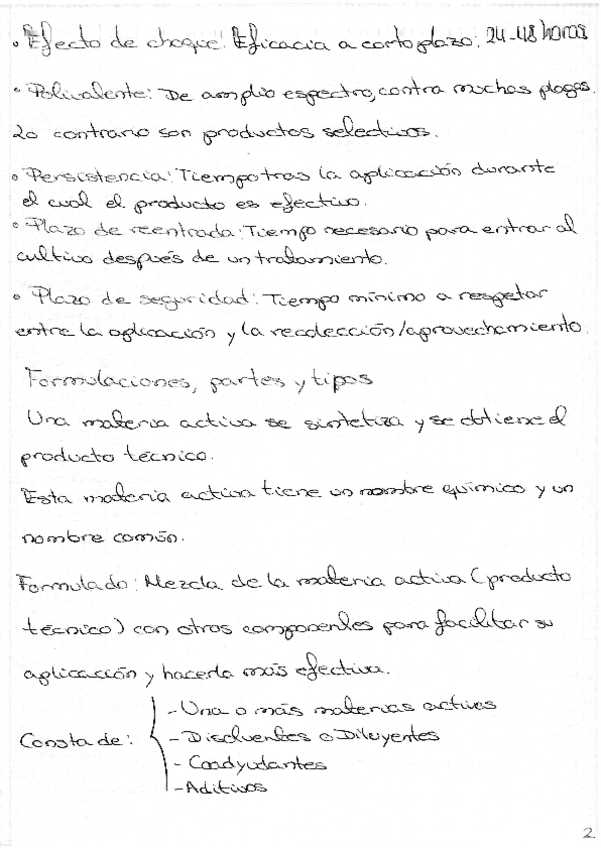 • Efecto de choque: Eficacia a corto plazo: 24-48 horas
• Polivalente: De amplio espectro, contra muchas plagas.
Lo contrario son productos selectivos.
• Persistencia: Tiempo tras la aplicación durante
el cual el producto es efectivo.
• Plazo de reentrada: Tiempo necesario para entrar al
cultivo después de un tratamiento.
• Plazo de seguridad: Tiempo mínimo a respetar
entre la aplicación y la recolección/aprovechamiento.
Formulaciones, partes y tipos
Una materia activa se sintetiza y se obtiene el
producto técnico.
Esta materia activa tiene un nombre químico y un
nombre común.
Formulado: Mezcla de la materia activa (producto
técnico) con otros componentes para facilitar su
aplicación y hacerla más efectiva.
Consta de:
- Una o más materias activas
- Disolventes o Diluyentes
- Coadyudantes
- Aditivos
2